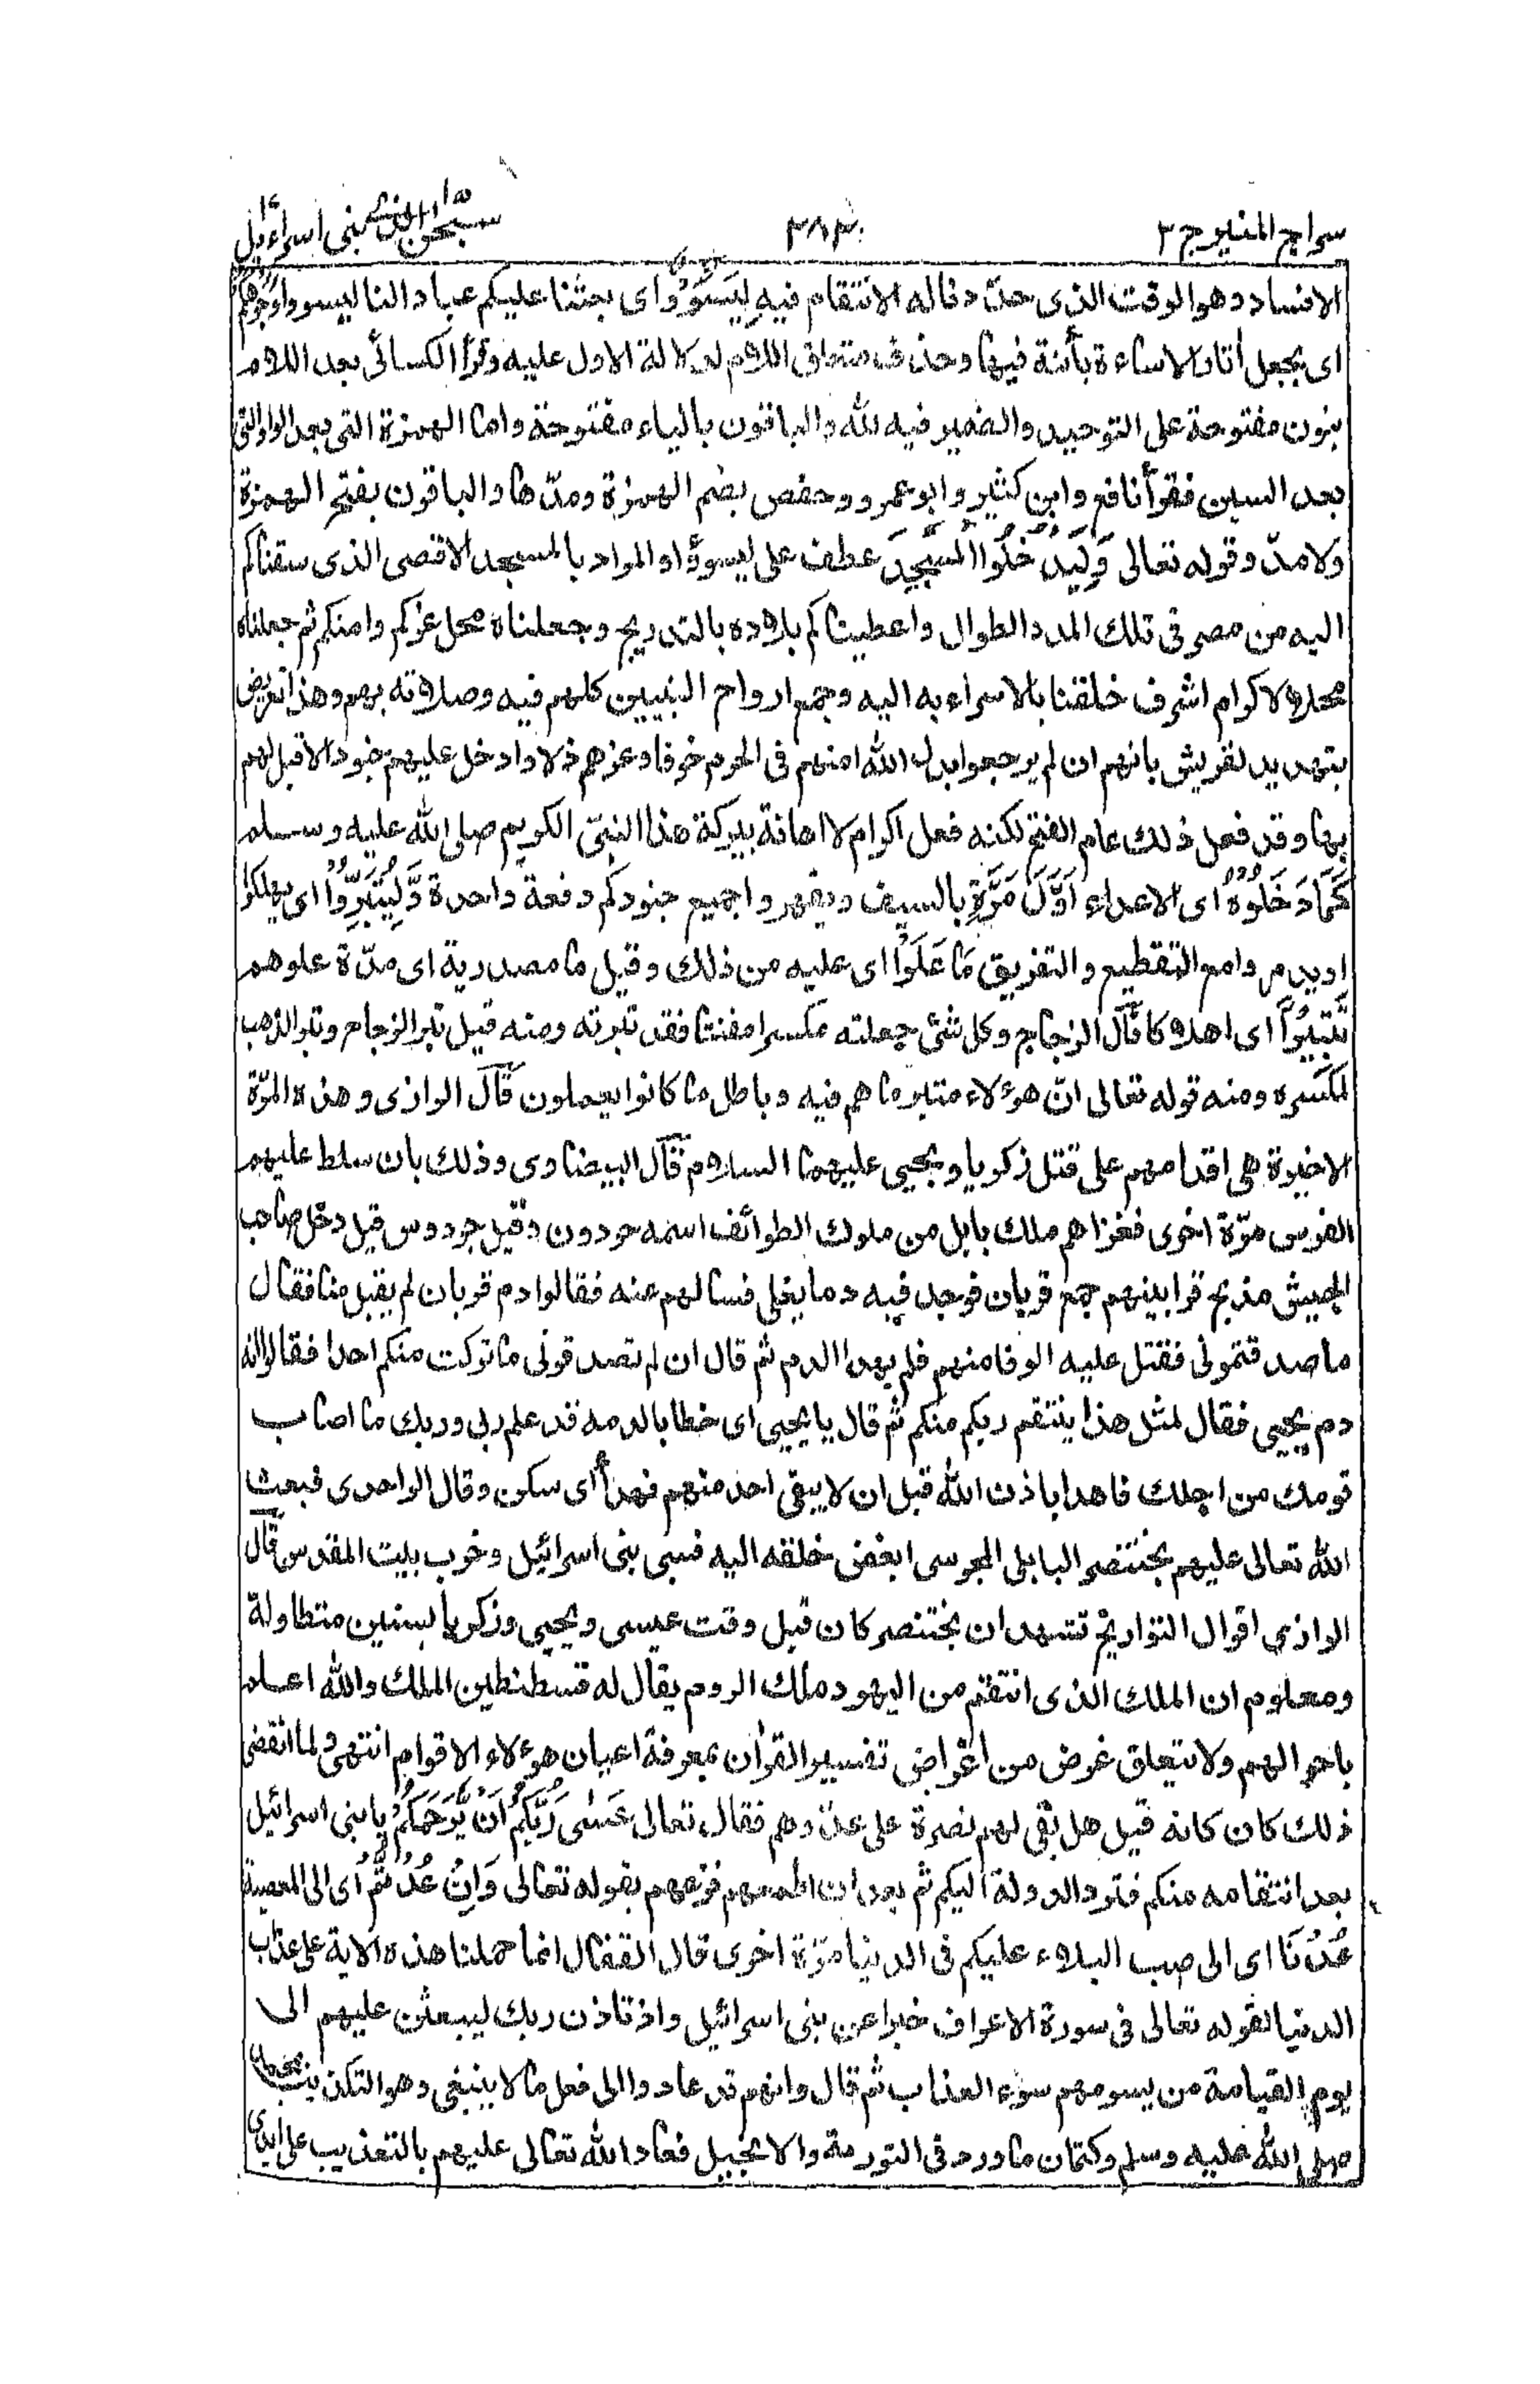 سراج المنير ج ٣
٣٨٣
سبحن الذى ١٥
بنى اسراءيل ١٧
الافساد وهو الوقت الذى حدّدنا له الانتقام فيه لِيَسُوْٓءٗا اى بعثنا عليكم عبادا لنا ليسووا وُجُوْهَكُمْ
اى يجعل أثار الاساءة بائنة فيها وحذف متعلق اللام لدلالة الاول عليه وقرأ الكسائى بعد اللام
بنون مفتوحة على التوحيد والضمير فيه لله والباقون بالياء مفتوحة واما الهمزة التى بعد الواو التى
بعد السين فقرأ نافع وابن كثير وابو عمرو وحفص بضم الهمزة ومدّها والباقون بفتح الهمزة
ولا مدّ وقوله تعالى وَلِيَدْخُلُوا الْمَسْجِدَ عطف على ليسوؤا والمراد بالمسجد الاقصى الذى سقناكم
اليه من مصر فى تلك المدد الطوال واعطيناكم بلاده بالتدريج وجعلناه محل عزكم وامنكم ثم جعلناه
محلا لاكرام اشرف خلقنا بالاسراء به اليه وجمع ارواح النبيين كلهم فيه وصلاته بهم وهذا تعريض
بتهديد لقريش بانهم ان لم يرجعوا بدل الله امنهم فى الحرم خوفا وعزهم ذلا وادخل عليهم جنودا لا قبل لهم
بها وقد فعل ذلك عام الفتح لكنه فعل اكرام لا اهانة ببركة هذا النبىّ الكريم صلى الله عليه وسلم
كَمَا دَخَلُوْهُ اى الاعداء اَوَّلَ مَرَّةٍ بالسيف ويقهروا جميع جنودكم دفعة واحدة وَّلِيُتَبِّرُوْا اى يهلكوا
او يدمروا مع التقطيع والتفريق مَا عَلَوْا اى عليه من ذلك وقيل ما مصدرية اى مدّة علوهم
تَتْبِيْرًا اى اهلاكا قال الزجاج وكل شئ جعلته مكسرا مفتتا فقد تبرته ومنه قيل تبر الزجاج وتبر الذهب
لمكسره ومنه قوله تعالى انّ هؤلاء متبر ما هم فيه وباطل ما كانوا يعملون قال الرازى وهذه المرّة
الاخيرة هى اقدامهم على قتل زكريا ويحيى عليهما السلام قال البيضاوى وذلك بان سلط عليهم
الفرس مرّة اخرى فغزاهم ملك بابل من ملوك الطوائف اسمه جودون وقيل جردوس قيل دخل صاحب
الجيش مذبح قرابينهم جمع قربان فوجد فيه دما يغلى فسالهم عنه فقالوا دم قربان لم يقبل منا فقال
ما صدقتمونى فقتل عليه الوفا منهم فلم يهدا الدم ثم قال ان لم تصدقونى ما تركت منكم احدا فقالوا انه
دم يحيى فقال لمثل هذا ينتقم ربكم منكم ثم قال يا يحيى اى خطابا لدمه قد علم ربى وربك ما اصاب
قومك من اجلك فاهدا باذن الله قبل ان لا يبقى احد منهم فهدأ اى سكن وقال الواحدى فبعث
الله تعالى عليهم بختنصر البابلى المجوسى ابغض خلقه اليه فسبى بنى اسرائيل وخرب بيت المقدس قال
الرازى اقوال التواريخ تشهد ان بختنصر كان قبل وقت عيسى ويحيى وزكريا بسنين متطاولة
ومعلوم ان الملك الذى انتقم من اليهود ملك الروم يقال له قسطنطين الملك والله اعلم
باحوالهم ولا يتعلق غرض من اغراض تفسير القرأن بمعرفة اعيان هؤلاء الاقوام انتهى ولما انقضى
ذلك كان كانه قيل هل بقى لهم نصرة على عدّوهم فقال تعالى عَسٰى رَبُّكُمْ اَنْ يَّرْحَمَكُمْ يا بنى اسرائيل
بعد انتقامه منكم فترد الدولة اليكم ثم بعد ان اطمعهم فزعهم بقوله تعالى وَاِنْ عُدْتُّمْ اى الى المعصية
عُدْنَا اى الى صب البلاء عليكم فى الدنيا مرّة اخرى قال القفال انما حملنا هذه الاية على عذاب
الدنيا لقوله تعالى فى سورة الاعراف خبرا عن بنى اسرائيل واذ تاذن ربك ليبعثن عليهم الى
يوم القيامة من يسومهم سوء العذاب ثم قال وانهم قد عادوا الى فعل ما لا ينبغى وهو التكذيب بمحمد
صلى الله عليه وسلم وكتمان ما ورد فى التورىة والانجيل فعاد الله تعالى عليهم بالتعذيب على ايدى